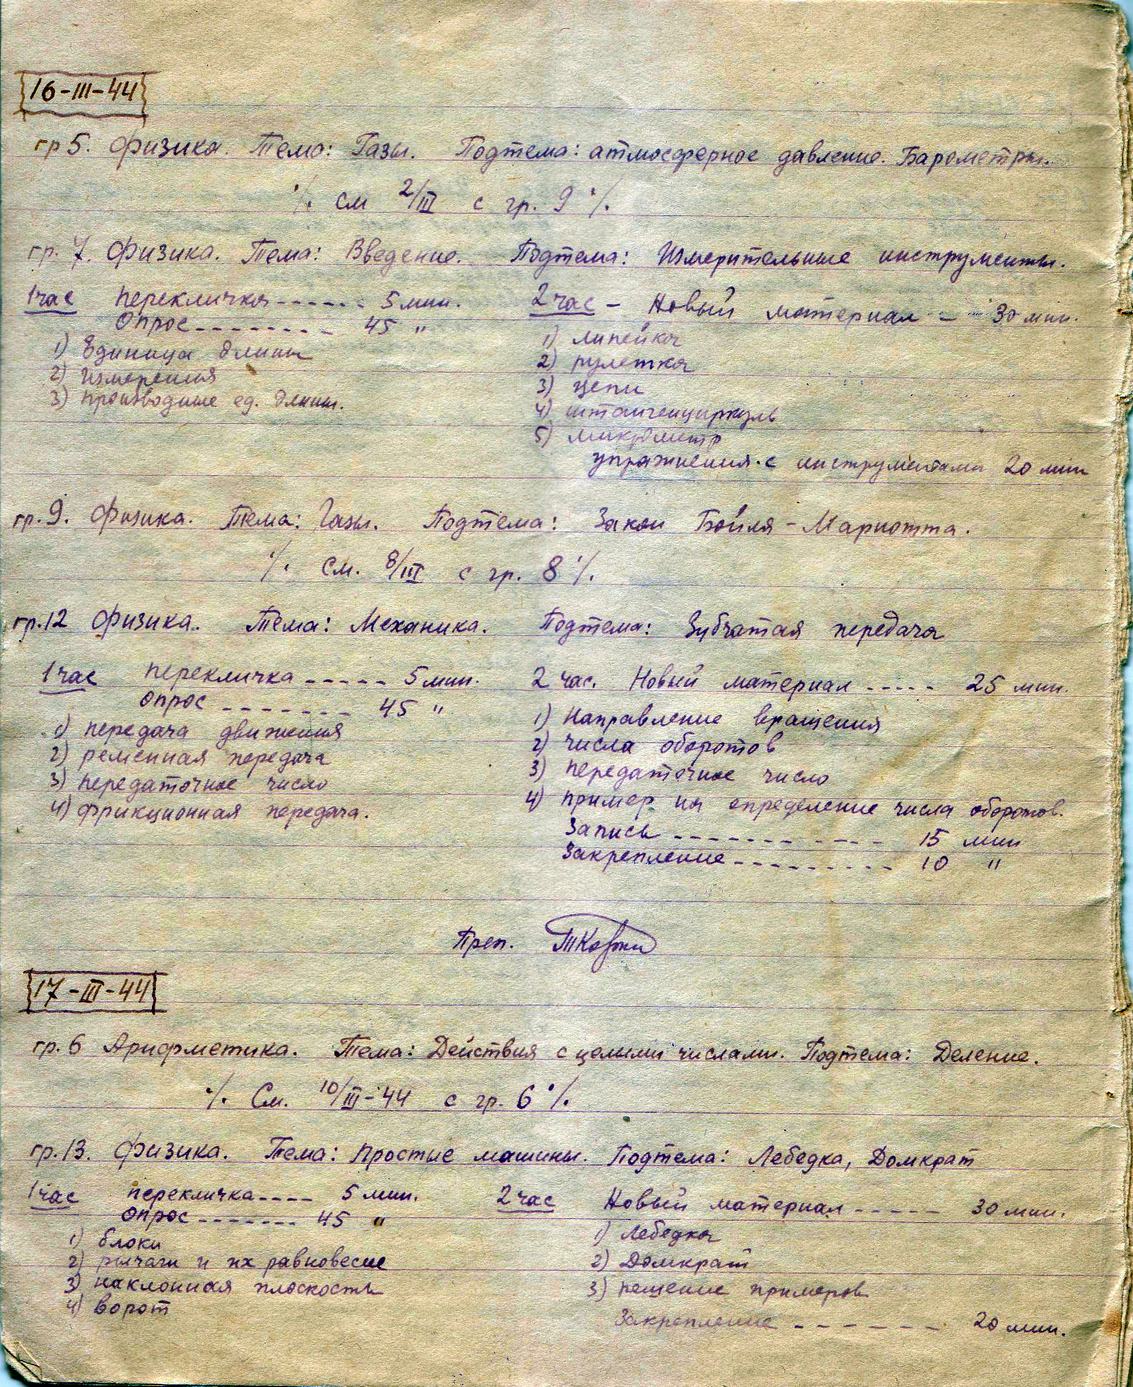 16-III-44
гр 5. Физика. Тема: Газы. Подтема: атмосферное давление. Барометры.
·/. см 2/III с гр. 9 ·/.
гр. 7. Физика. Тема: Введение. Подтема: Измерительные инструменты.
1 час перекличка ------ 5 мин. 2 час - Новый материал - 30 мин.
Опрос ------- 45 " 1) линейка
1) Единица длины 2) рулетка
2) измерения 3) цепи
3) производные ед. длины. 4) штангенциркуль
5) микрометр
упражнения с инструментами 20 мин
гр. 9. Физика. Тема: Газы. Подтема: Закон Бойля-Мариотта.
·/. см. 8/III с гр. 8 ·/.
гр. 12 Физика. Тема: Механика. Подтема: Зубчатая передача
1 час перекличка ----- 5 мин. 2 час. Новый материал ----- 25 мин.
опрос ------- 45 " 1) Направление вращения
1) передача движения 2) числа оборотов
2) ременная передача 3) передаточное число
3) передаточное число 4) пример на определение числа оборотов.
4) фрикционная передача. Запись --------- 15 мин
Закрепление --------- 10 "
Преп.
17-III-44
гр. 6 Арифметика. Тема: Действия с целыми числами. Подтема: Деление.
·/. См. 10/III-44 с гр. 6 ·/.
гр. 13. Физика. Тема: простые машины. Подтема: Лебедка, Домкрат
1 час перекличка ---- 5 мин. 2 час Новый материал ----- 30 мин.
опрос ------- 45 " 1) Лебедка
1) блоки 2) Домкрат
2) рычаги и их равновесие 3) решение примеров
3) наклонная плоскость Закрепление ------ 20 мин.
4) ворот